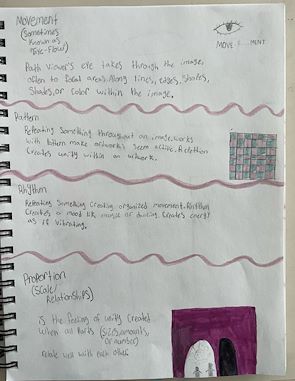 Movement
(Sometimes
Known as
"Eye-Flow")
MOVE MENT
Path viewer's eye takes through the image,
often to focal areas. Along lines, edges, Shapes,
Shades, or Color within the image.
Pattern
Repeating Something throughout an image. works
with make artworks seem active. A
Creates unity within an artwork.
Rhythm
Repeating Something Creating organized movement. Rhythm
Creates a mood like music or dancing. Creates energy
as if Vibrating.
Proportion
(Scale/
Relationships)
is the feeling of unity Created
when all Parts (Sizes, amounts,
or number)
relate well with each other